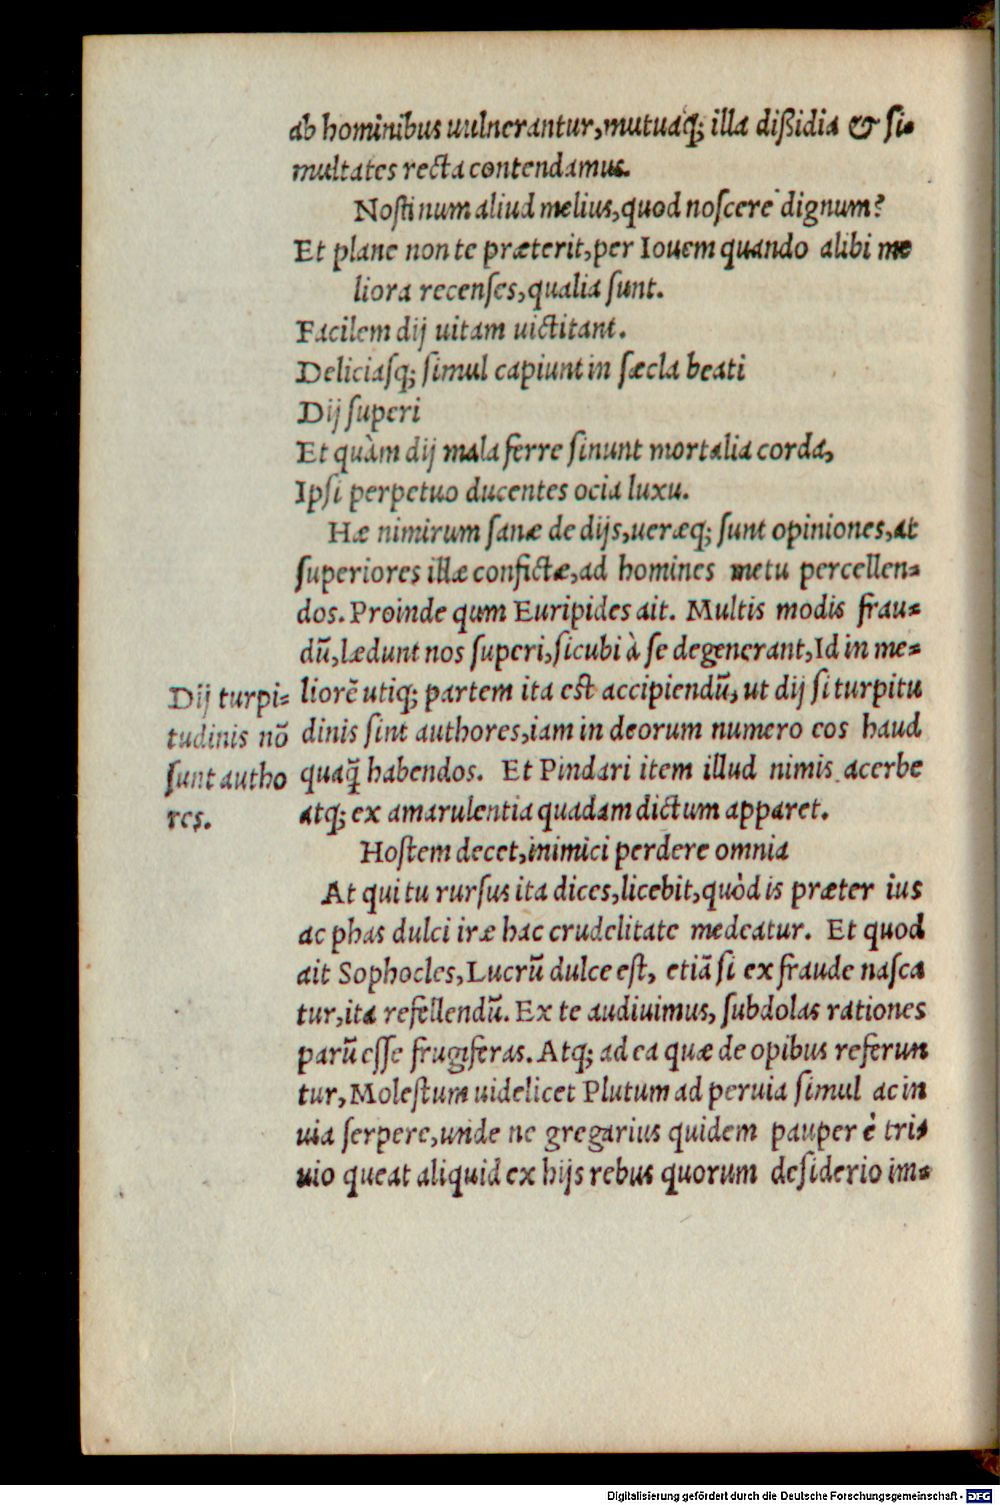 ab hominibus uulnerantur,mutuaq; illa dißidia & si-
multates recta contendamus.
Nosti num aliud melius,quod noscere dignum?
Et plane non te præterit,per Iouem quando alibi me
liora recenses,qualia sunt.
Facilem dij uitam uictitant.
Deliciasq; simul capiunt in sæcla beati
Dij superi
Et quàm dij mala ferre sinunt mortalia corda,
Ipsi perpetuo ducentes ocia luxu.
Hæ nimirum sanæ de dijs,ueræq; sunt opiniones,at
superiores illæ confictæ,ad homines metu percellen-
dos. Proinde qum Euripides ait. Multis modis frau-
dũ,lædunt nos superi,sicubi à se degenerant,Id in me-
liorẽ utiq; partem ita est accipiendũ, ut dij si turpitu
dinis sint authores,iam in deorum numero eos haud
quaq̃ habendos. Et Pindari item illud nimis acerbe
atq; ex amarulentia quadam dictum apparet.
Dij turpi-
tudinis nõ
sunt autho
res.
Hostem decet,inimici perdere omnia
At qui tu rursus ita dices,licebit,quòd is præter ius
ac phas dulci iræ hac crudelitate medeatur. Et quod
ait Sophocles,Lucrũ dulce est, etiã si ex fraude nasca
tur,ita refellendũ. Ex te audiuimus, subdolas rationes
parũ esse frugiferas. Atq; ad ea quæ de opibus referun
tur,Molestum uidelicet Plutum ad peruia simul ac in
uia serpere,unde ne gregarius quidem pauper è tri-
uio queat aliquid ex hijs rebus quorum desiderio im-
Digitalisierung gefördert durch die Deutsche Forschungsgemeinschaft - DFG